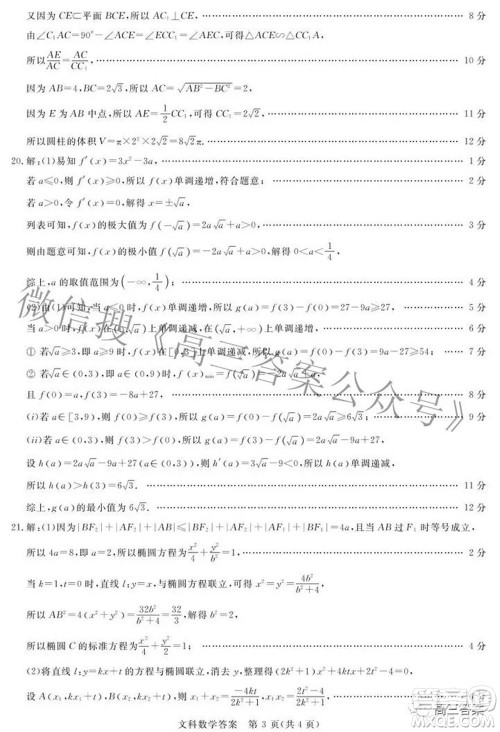 又因为 CE⊂平面 BCE,所以 AC₁⊥CE, 8 分
由∠C₁AC=90°−∠ACE=∠ECC₁,∠ACE=∠ECC₁,可得△ACE∽△CC₁A,
所以AE/AC=AC/CC₁, 10 分
因为 AB=4,BC=2√3,所以 AC=√(AB²−BC²)=2,
因为 E 为 AB 中点,所以 AE=1/2CC₁,可得 CC₁=2√2, 11 分
所以圆柱的体积 V=π×2²×2√2=8√2π. 12 分
20.解:(1)易知 f′(x)=3x²−3a, 1 分
若 a≤0,则 f′(x)≥0,所以 f(x)单调递增,符合题意; 2 分
若 a>0,令 f′(x)=0,解得 x=±√a,
列表可知,f(x)的极大值为 f(−√a)=2a√a+a>0, 3 分
则由题意可知,f(x)的极小值 f(√a)=−2a√a+a>0,解得 0<a<1/4,
综上,a 的取值范围为(−∞,1/4); 4 分
(2)由(1)可知,当 a≤0 时,f(x)单调递增,所以 g(a)=f(3)−f(0)=27−9a≥27, 5 分
当 a>0 时,f(x)在(0,√a)上单调递减,在(√a,+∞)上单调递增, 6 分
① 若√a≥3,即 a≥9 时,f(x)在[0,3]上单调递减,所以 g(a)=f(0)−f(3)=9a−27≥54; 7 分
② 若√a∈(0,3),即 a∈(0,9)时,f(x)min=f(√a)=−2a√a+a,
且 f(0)=a,f(3)=−8a+27, 8 分
(ⅰ)若 a∈[3,9),则 f(0)≥f(3),所以 g(a)=f(0)−f(√a)=2a√a≥6√3; 9 分
(ⅱ)若 a∈(0,3),则 f(0)<f(3),所以 g(a)=f(3)−f(√a)=2a√a−9a+27,
设 h(a)=2a√a−9a+27(a∈(0,3)),则 h′(a)=3√a−9<0,所以 h(a)单调递减,
所以 h(a)>h(3)=6√3. 11 分
综上,g(a)的最小值为 6√3. 12 分
21.解:(1)因为|BF₂|+|AF₂|+|AB|≤|BF₂|+|AF₂|+|BF₁|+|AF₁|=4a,且当 AB 过 F₁ 时等号成立,
所以 4a=8,即 a=2,所以椭圆方程为x²/4+y²/b²=1, 2 分
当 k=1,t=0 时,直线 l:y=x,与椭圆方程联立,可得 x²=y²=4b²/(b²+4),
所以 AB²=4(x²+y²)=32b²/(b²+4)=32/3,解得 b²=2,
所以椭圆 C 的标准方程为x²/4+y²/2=1; 4 分
(2)将直线 l:y=kx+t 的方程与椭圆联立,消去 y,整理得(2k²+1)x²+4ktx+2t²−4=0,
设 A(x₁,kx₁+t),B(x₂,kx₂+t),则 x₁+x₂=−4kt/(2k²+1),x₁x₂=(2t²−4)/(2k²+1),
文科数学答案 第 3 页(共 4 页)
微信搜《高三答案公众号》
高三答案